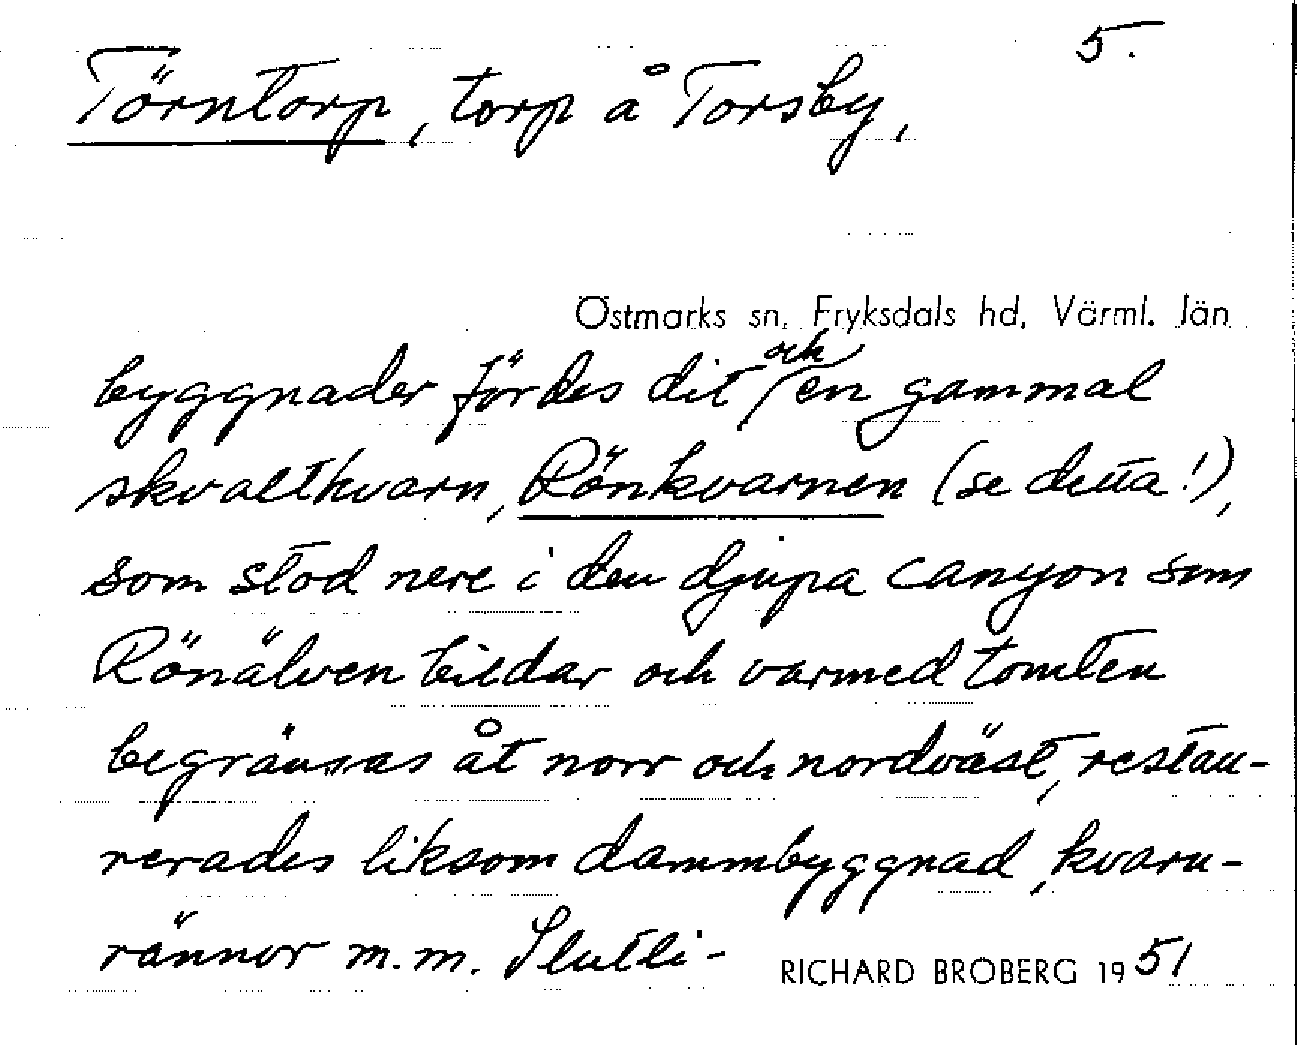 5.
Törntorp, torp å Torsby,
Östmarks sn, Fryksdals hd, Värml. län
och
byggnader fördes dit / en gammal
skvaltkvarn, Rönkvarnen (se detta!),
som stod nere i den djupa canyon som
Rönälven bildar och varmed tomten
begränsas åt norr och nordväst, restau-
rerades liksom dammbyggnad, kvarn-
rännor m.m. Slutli-
RICHARD BROBERG 1951